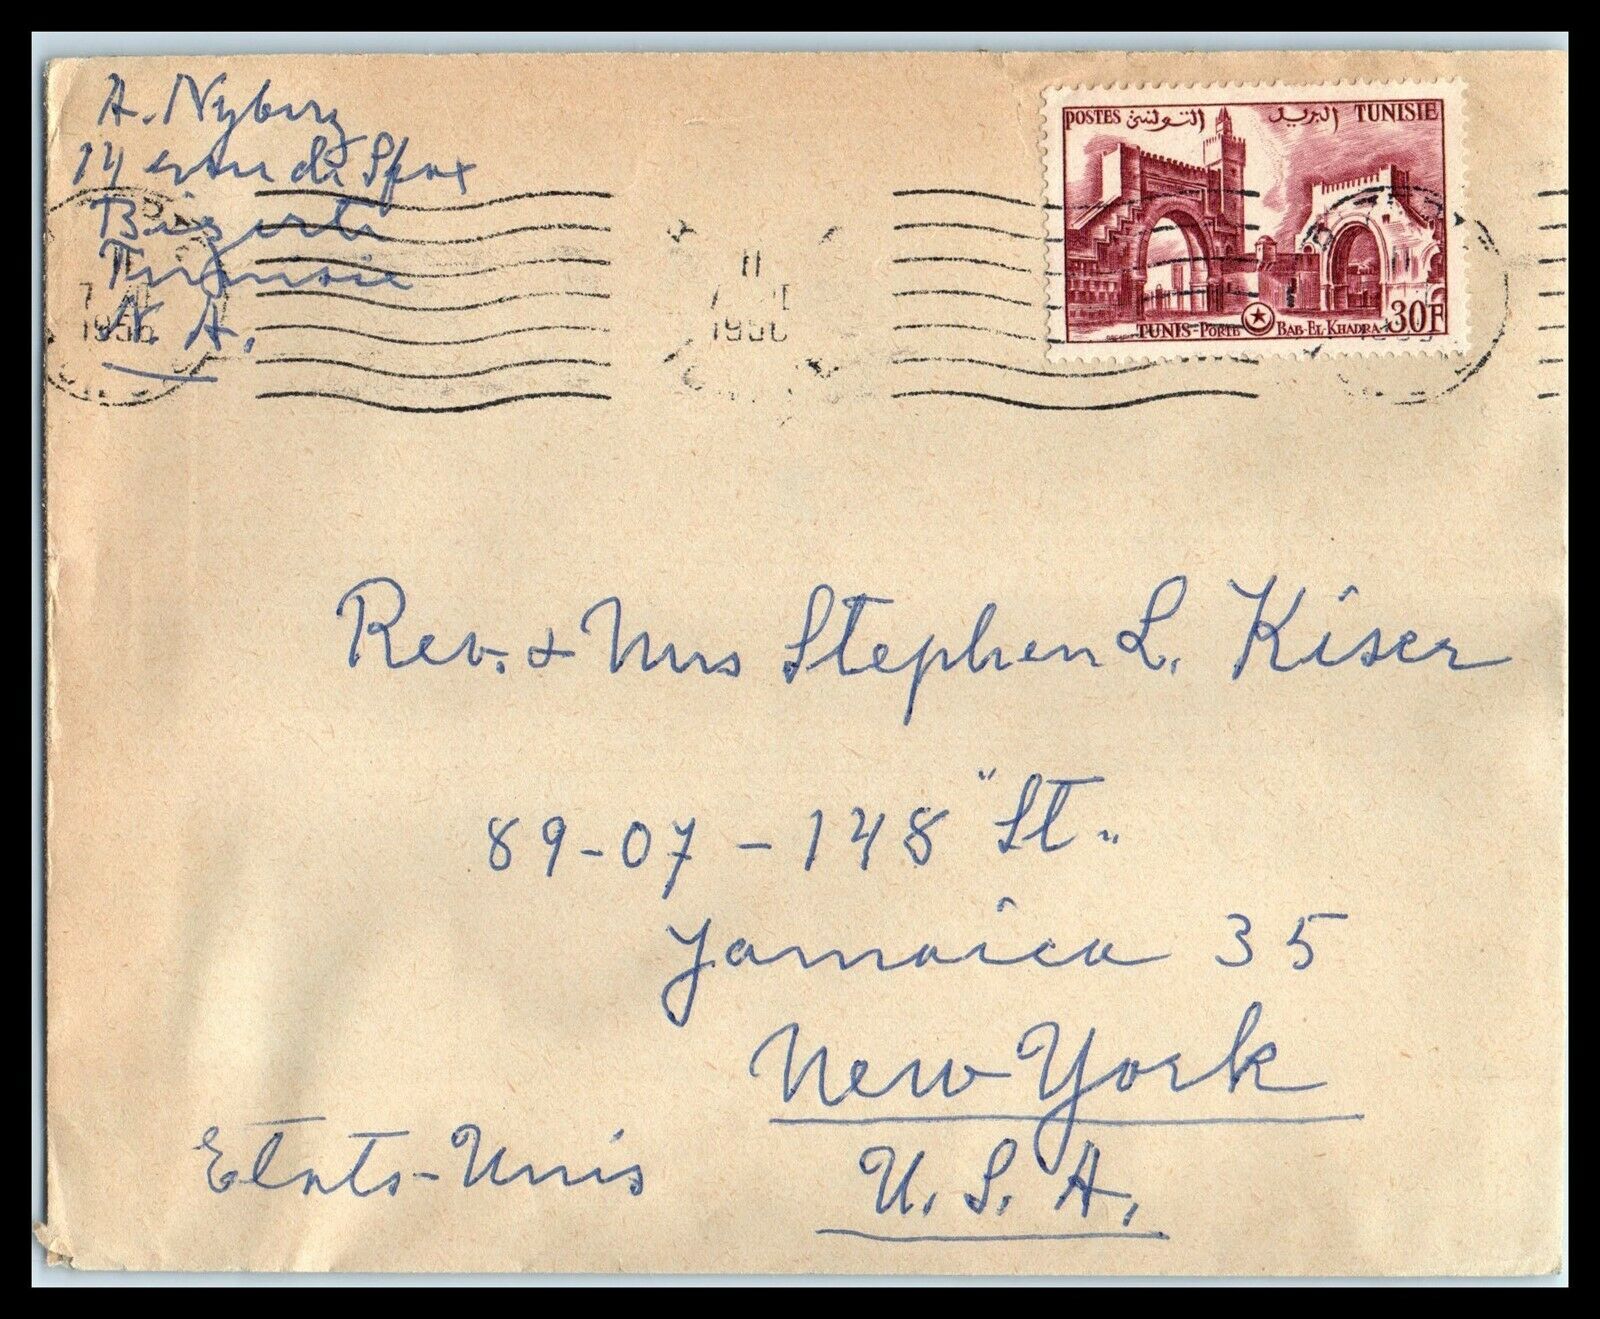 A. Nyberg
14 de Sfax
Bizerte
Tunisie
N. A.
POSTES التونسي البريد TUNISIE
TUNIS-PORTE BAB-EL-KHADRA 30F
11
1956
11
195
Rev. & Mrs Stephen L. Kiser
89-07-148" St.
Jamaica 35
New York
Etats-Unis
U.S.A.